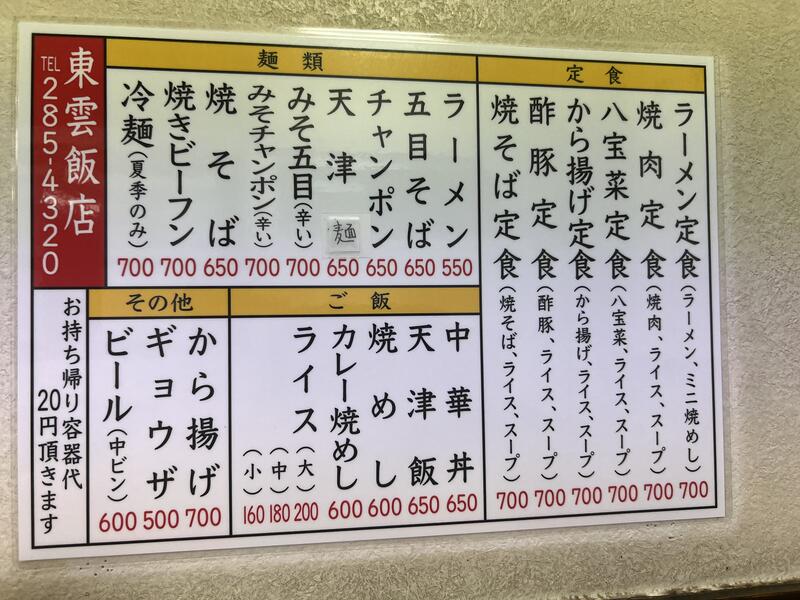 定食
ラーメン定食(ラーメン、ミニ焼めし) 700
焼肉定食(焼肉、ライス、スープ) 700
八宝菜定食(八宝菜、ライス、スープ) 700
から揚げ定食(から揚げ、ライス、スープ) 700
酢豚定食(酢豚、ライス、スープ) 700
焼そば定食(焼そば、ライス、スープ) 700
麺類
ラーメン 550
五目そば 650
チャンポン 650
天津麺 650
みそ五目(辛い) 700
みそチャンポン(辛い) 700
焼そば 650
焼きビーフン 700
冷麺(夏季のみ) 700
東雲飯店
TEL 285-4320
ご飯
中華丼 650
天津飯 650
焼めし 600
カレー焼めし 600
ライス(大) 200
(中) 180
(小) 160
その他
から揚げ 700
ギョウザ 500
ビール(中ビン) 600
お持ち帰り容器代
20円頂きます